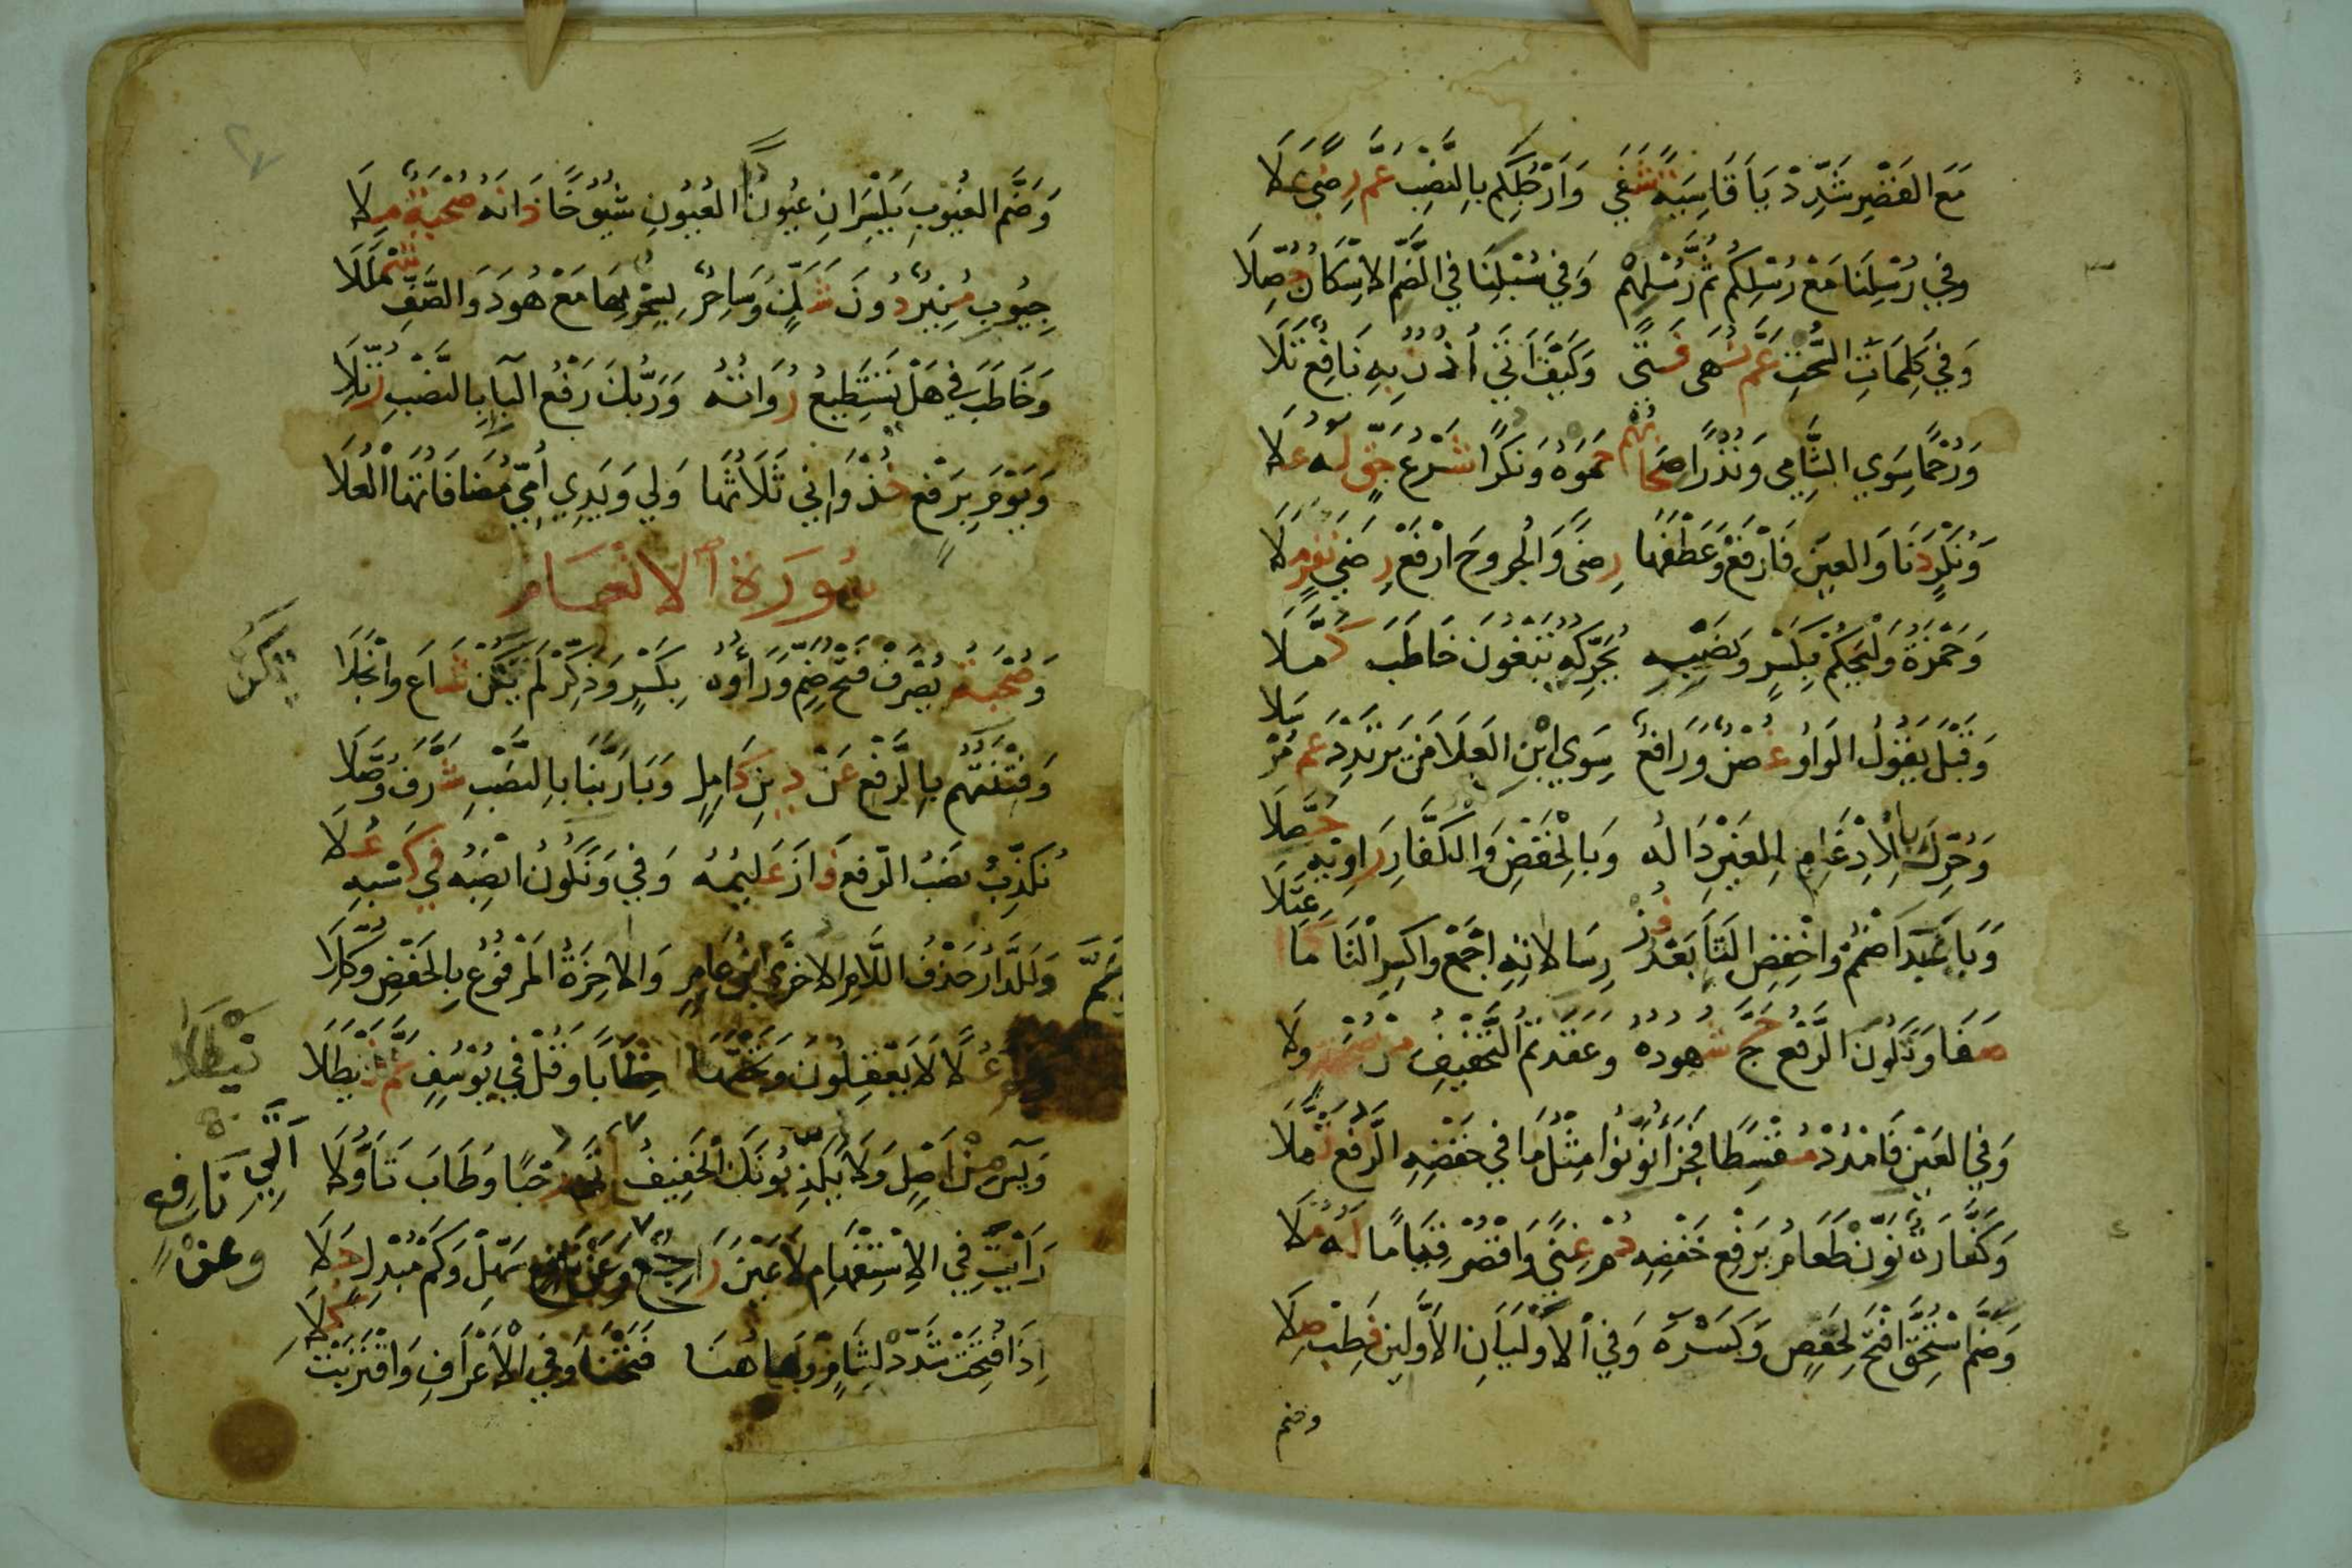 مَعَ القَصْرِ شَدِّدْ يَاءَ قَاسِيَةً شَفَى وَأَرْجُلِكُمْ بِالنَّصْبِ عَمَّ رِضًى عَلَا
وَفِي رُسْلِنَا مَعْ رُسْلِكُمْ ثُمَّ رُسْلِهِمْ وَفِي سُبْلِنَا فِي الضَّمِّ الاِسْكَانُ حُصِّلَا
وَفِي كَلِمَاتِ السُّحْتِ عَمَّ نُهَى فَتًى وَكَيْفَ أَتَى أُذْنٌ بِهِ نَافِعٌ تَلَا
وَرُحْمًا سِوَى الشَّامِي وَنُذْرًا صِحَابُهُمْ حَمَوْهُ وَنُكْرًا شَرْعُ حَقٍّ لَهُ عُلَا
وَنُكْرٍ دَنَا وَالعَيْنَ فَارْفَعْ وَعَطْفَهَا رِضًى وَالجُرُوحَ ارْفَعْ رِضَى نَفَرٍ مَلَا
وَحَمْزَةُ وَلْيَحْكُمْ بِكَسْرٍ وَنَصْبِهِ يُحَرِّكُهُ تَبْغُونَ خَاطَبَ كُمَّلَا
وَقَبْلَ يَقُولُ الوَاوُ غُصْنٌ وَرَافِعٌ سِوَى ابْنِ العَلَا مَنْ يَرْتَدِدْ عَمَّ مُرْسَلَا
وَحُرِّكَ بِالاِدْغَامِ لِلْغَيْرِ دَالُهُ وَبِالخَفْضِ وَالكُفَّارِ رَاوِيهِ حَصَّلَا
وَبَا عَبَدَ اضْمُمْ وَاخْفِضِ التَّاءَ بَعْدُ فُزْ رِسَالَاتِهِ اجْمَعْ وَاكْسِرِ التَّا كَمَا اعْتَلَا
صَفَا وَتَكُونُ الرَّفْعُ حَجَّ شُهُودُهُ وَعَقَّدْتُمُ التَّخْفِيفُ مِنْ صُحْبَةٍ وِلَا
وَفِي العَيْنِ فَامْدُدْ مُقْسِطًا فَجَزَاءُ نَوِّنُوا مِثْلُ مَا فِي خَفْضِهِ الرَّفْعُ ثُمَّلَا
وَكَفَّارَةٌ نَوِّنْ طَعَامُ بِرَفْعِ خَفْضِهِ دُمْ غِنًى وَاقْصُرْ قِيَامًا لَهُ مُلَا
وَضَمَّ اسْتُحِقَّ افْتَحْ لِحَفْصٍ وَكَسْرَهُ وَفِي الأَوْلَيَانِ الأَوَّلِينَ فَطِبْ صِلَا
وضم
وَضَمَّ الغُيُوبِ يَكْسِرَانِ عُيُونًا العُيُونِ شُيُوخًا دَانَهُ صُحْبَةٌ مِلَا
جُيُوبِ مُنِيرٌ دُونَ شَكٍّ وَسَاحِرٌ بِسِحْرٌ بِهَا مَعْ هُودَ وَالصَّفِّ شَمْلَلَا
وَخَاطَبَ فِي هَلْ يَسْتَطِيعُ رُوَاتُهُ وَرَبُّكَ رَفْعُ البَاءِ بِالنَّصْبِ رُتِّلَا
وَيَوْمَ بِرَفْعٍ خُذْ وَإِنِّي ثَلَاثُهَا وَلِي وَيَدِي أُمِّي مُضَافَاتُهَا العُلَا
سُورَةُ الأَنْعَامِ
وَصُحْبَةُ يُصْرَفْ فَتْحُ ضَمٍّ وَرَاؤُهُ بِكَسْرٍ وَذَكِّرْ لَمْ يَكُنْ شَاعَ وَانْجَلَا
يكن
وَفِتْنَتُهُمْ بِالرَّفْعِ عَنْ دِينِ كَامِلٍ وَبَا رَبِّنَا بِالنَّصْبِ شَرَّفَ وُصَّلَا
نُكَذِّبُ نَصْبُ الرَّفْعِ فَازَ عَلِيمُهُ وَفِي وَنَكُونُ انْصِبْهُ فِي كَسْبِهِ عُلَا
وَلَلدَّارُ حَذْفُ اللَّامِ الاُخْرَى ابْنُ عَامِرٍ وَالاخِرَةُ المَرْفُوعُ بِالخَفْضِ وُكِّلَا
وَعَمَّ عُلًا لَا يَعْقِلُونَ وَتَحْتَهَا خِطَابًا وَقُلْ فِي يُوسُفٍ عَمَّ نَيْطَلَا
نيطلا
وَيَسَ مِنْ أَصْلٍ وَلَا يُكْذِبُونَكَ الخَفِيفُ أَتَى رُحْبًا وَطَابَ تَأَوُّلَا
أتى
رَأَيْتَ فِي الاِسْتِفْهَامِ لَا عَيْنَ رَاجِعٌ وَعَنْ نَافِعٍ سَهِّلْ وَكَمْ مُبْدِلٍ جَلَا
وعن نافع
إِذَا فُتِحَتْ شَدِّدْ لِشَامٍ وَهَاهُنَا فَتَحْنَا وَفِي الأَعْرَافِ وَاقْتَرَبَتْ كَلَا